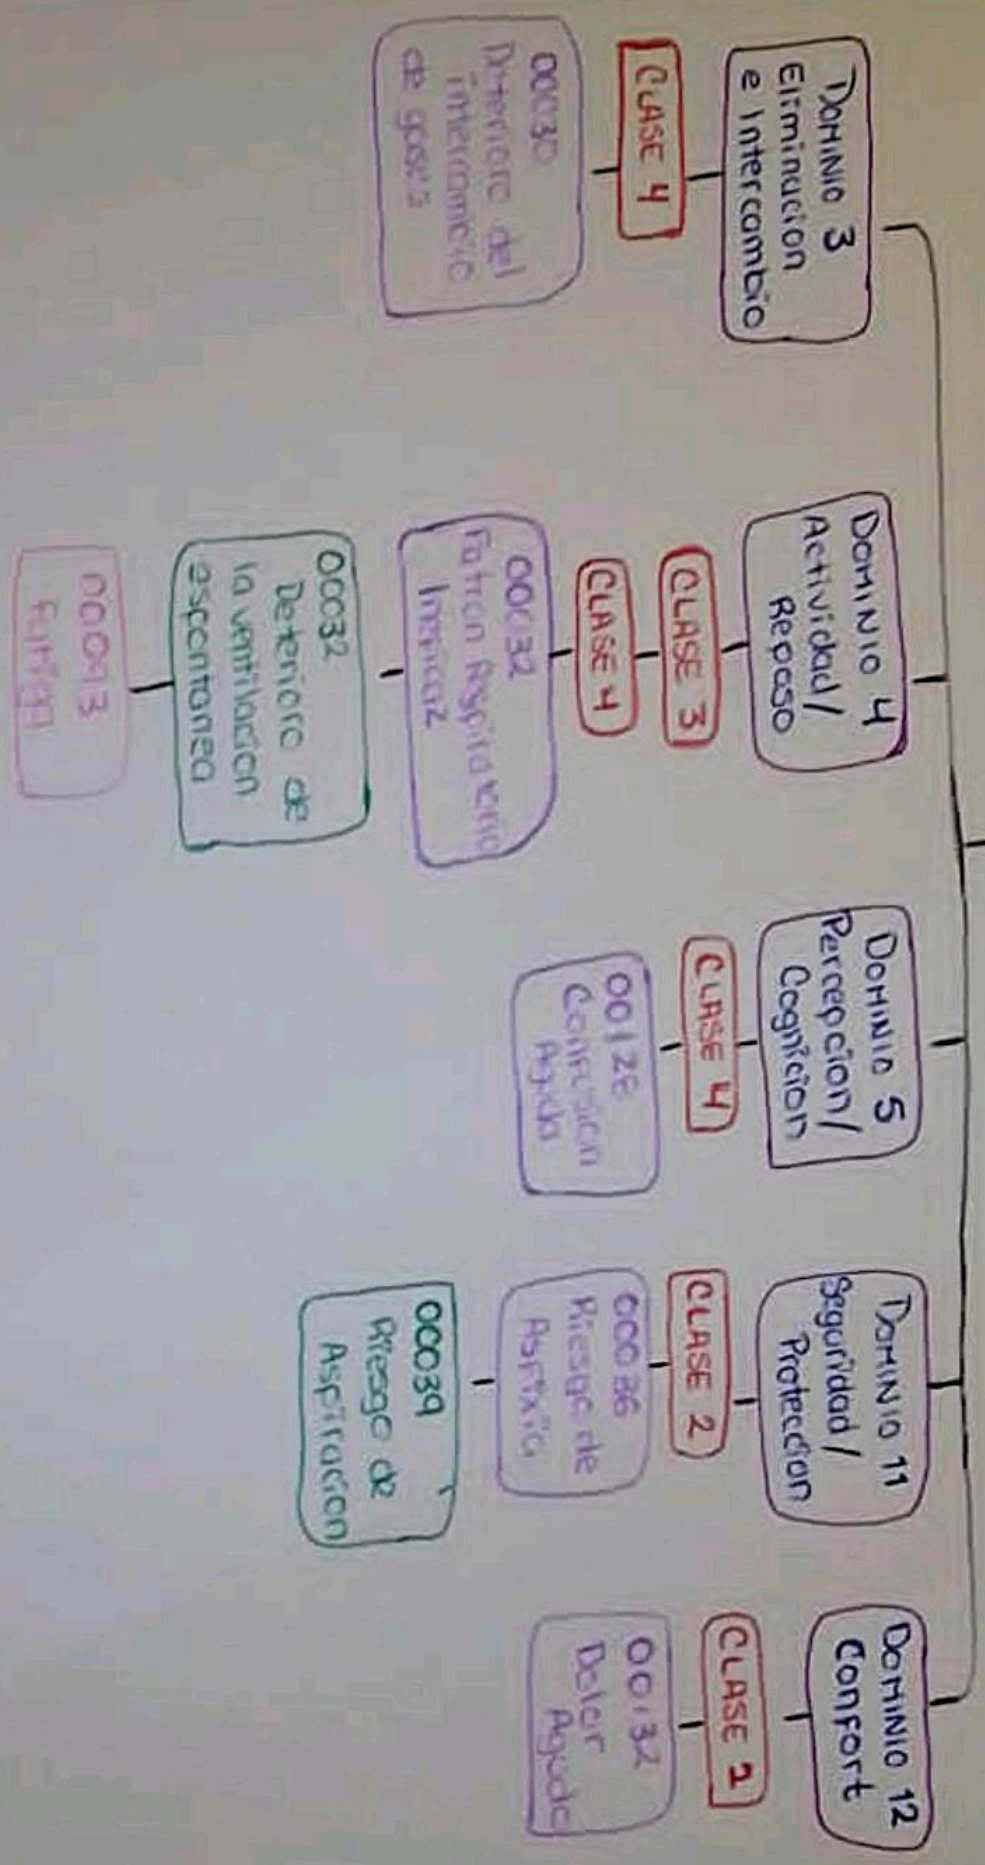 DOMINIO 3
Eliminacion
e Intercambio
CLASE 4
00030
Deterioro del
intercambio
de gases
DOMINIO 4
Actividad/
Reposo
CLASE 3
CLASE 4
00032
Patron Respiratorio
Ineficaz
00032
Deterioro de
la ventilacion
espontanea
00093
Fatiga
DOMINIO 5
Percepcion/
Cognicion
CLASE 4
00128
Confusion
Aguda
DOMINIO 11
Seguridad/
Proteccion
CLASE 2
00036
Riesgo de
Asfixia
00039
Riesgo de
Aspiracion
DOMINIO 12
Confort
CLASE 1
00132
Dolor
Agudo